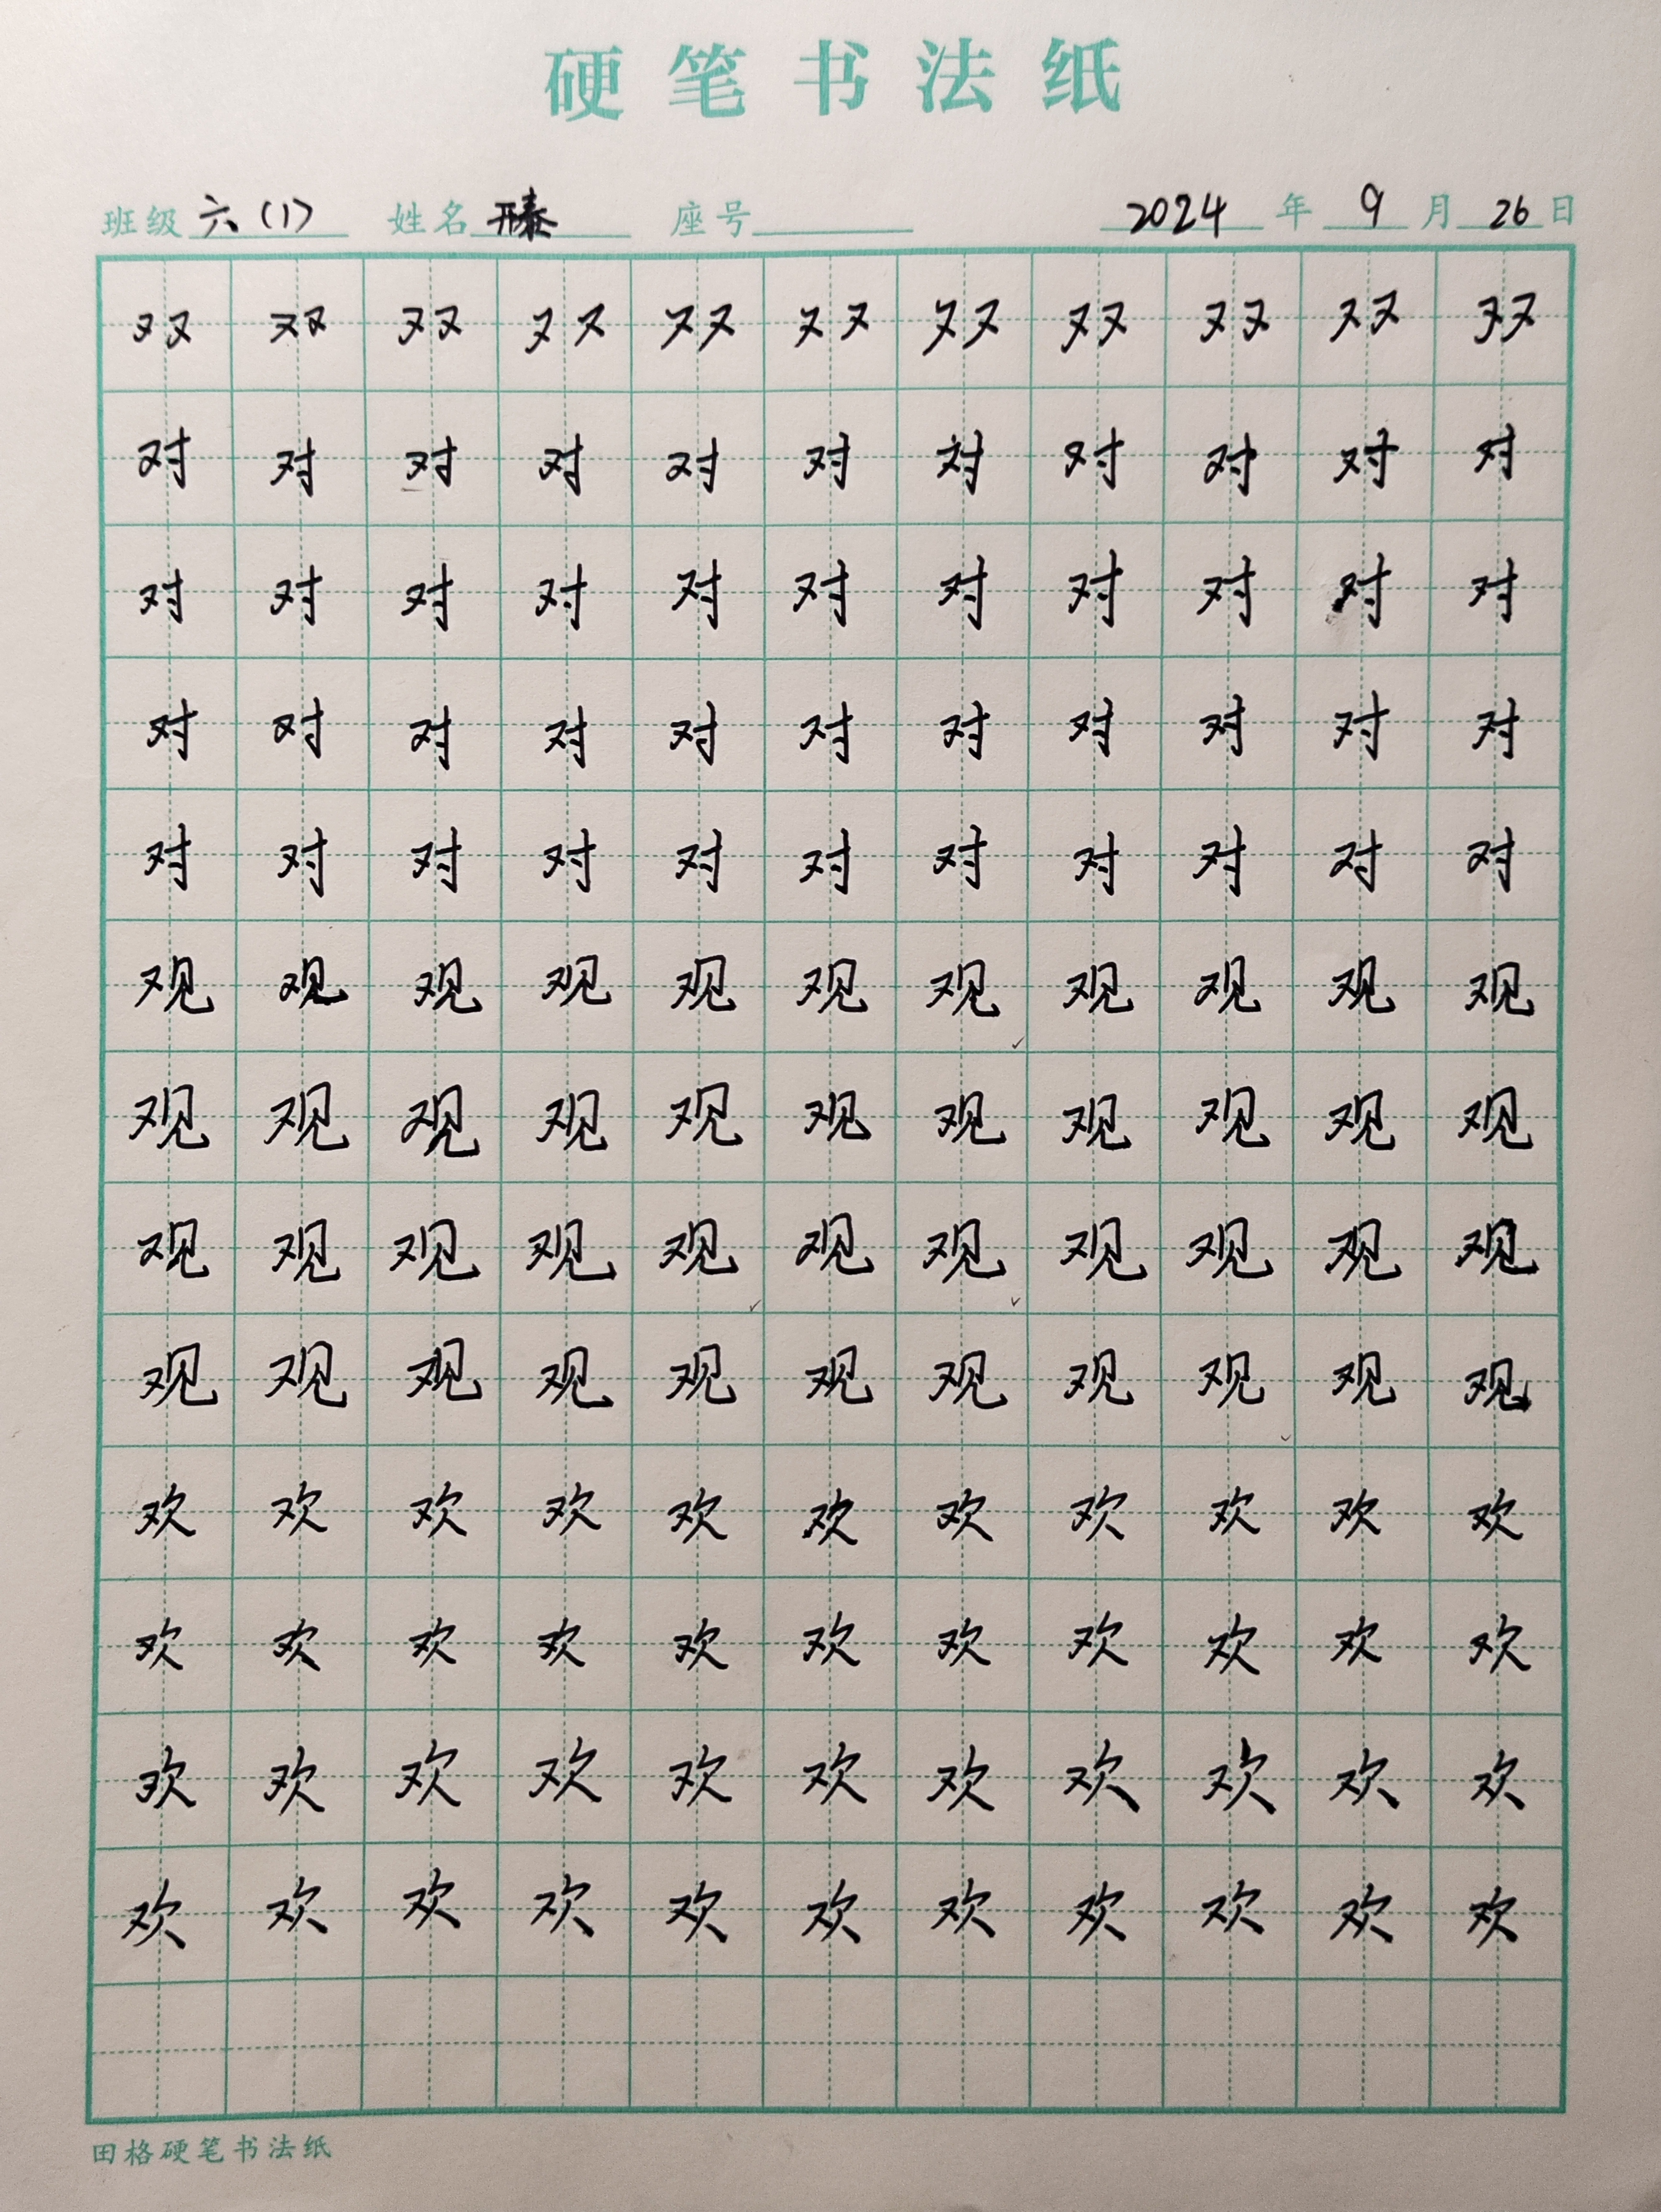 硬笔书法纸
班级 六(1) 姓名 座号 2024 年 9 月 26 日
双双双双双双双双双双双
对对对对对对对对对对对
对对对对对对对对对对对
对对对对对对对对对对对
对对对对对对对对对对对
观观观观观观观观观观观
观观观观观观观观观观观
观观观观观观观观观观观
观观观观观观观观观观观
欢欢欢欢欢欢欢欢欢欢欢
欢欢欢欢欢欢欢欢欢欢欢
欢欢欢欢欢欢欢欢欢欢欢
欢欢欢欢欢欢欢欢欢欢欢
田格硬笔书法纸